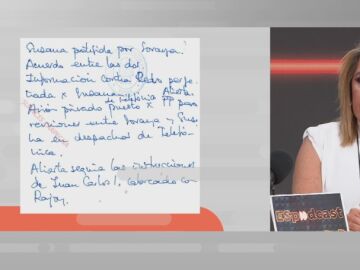 Susana pillada por Soraya!
Acuerdo entre las dos
Información contra Pedro
x Susana
de Telefónica Alierta.
Avión privado puesto x PP para
reuniones entre Soraya y Susa
na en despachos de Telefó-
nica.
Alierta seguía las instrucciones
de Juan Carlos I,
Rajoy.
podcast